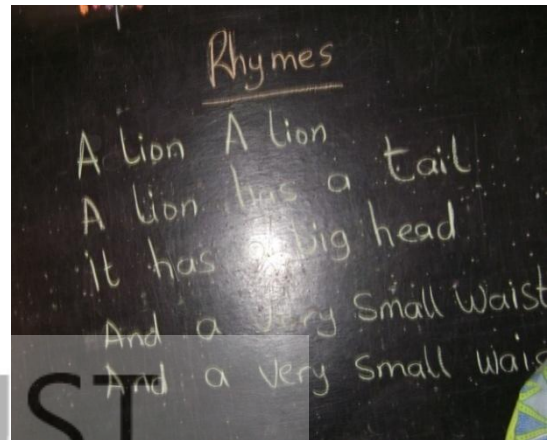 Rhymes
A Lion A Lion
A Lion has a tail
it has a big head
And a very Small Waist
And a very Small
ST